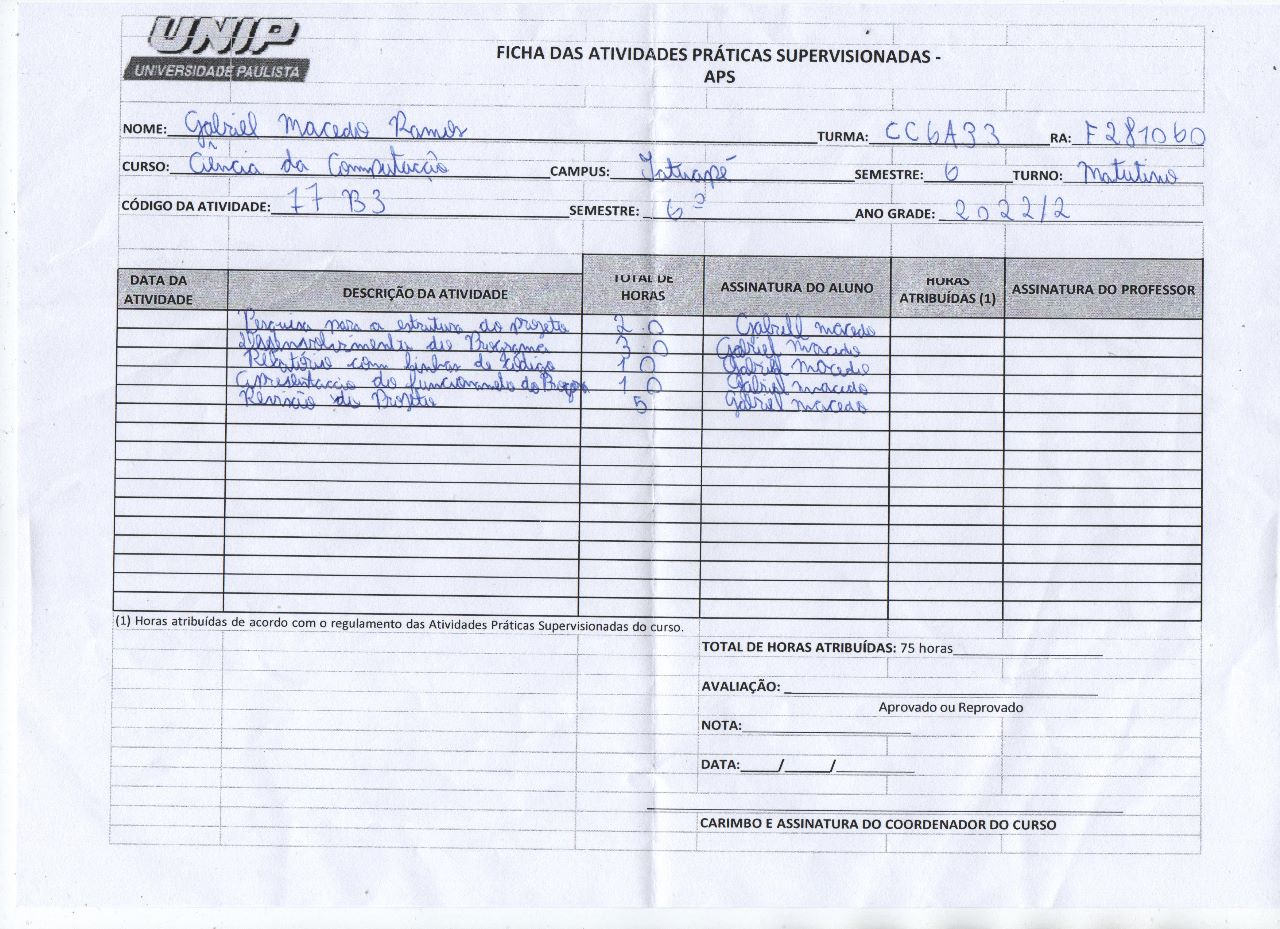 UNIP
UNIVERSIDADE PAULISTA
FICHA DAS ATIVIDADES PRÁTICAS SUPERVISIONADAS -
APS
NOME: Gabriel Macedo Ramos TURMA: CC6A33 RA: F281060
CURSO: Ciência da Computação CAMPUS: Tatuapé SEMESTRE: 6 TURNO: Matutino
CÓDIGO DA ATIVIDADE: 77 B3 SEMESTRE: 6º ANO GRADE: 2022/2
DATA DA ATIVIDADE DESCRIÇÃO DA ATIVIDADE TOTAL DE HORAS ASSINATURA DO ALUNO HORAS ATRIBUÍDAS (1) ASSINATURA DO PROFESSOR
Pesquisa para a estrutura do projeto 20 Gabriell macedo
Desenvolvimento do Programa 30 Gabriel Macedo
Relatório com linhas de código 10 Gabriel macedo
Apresentação do funcionamento do 10 Gabriel macedo
Revisão de Projeto 5 Gabriel macedo
(1) Horas atribuídas de acordo com o regulamento das Atividades Práticas Supervisionadas do curso.
TOTAL DE HORAS ATRIBUÍDAS: 75 horas
AVALIAÇÃO:
Aprovado ou Reprovado
NOTA:
DATA: / /
CARIMBO E ASSINATURA DO COORDENADOR DO CURSO